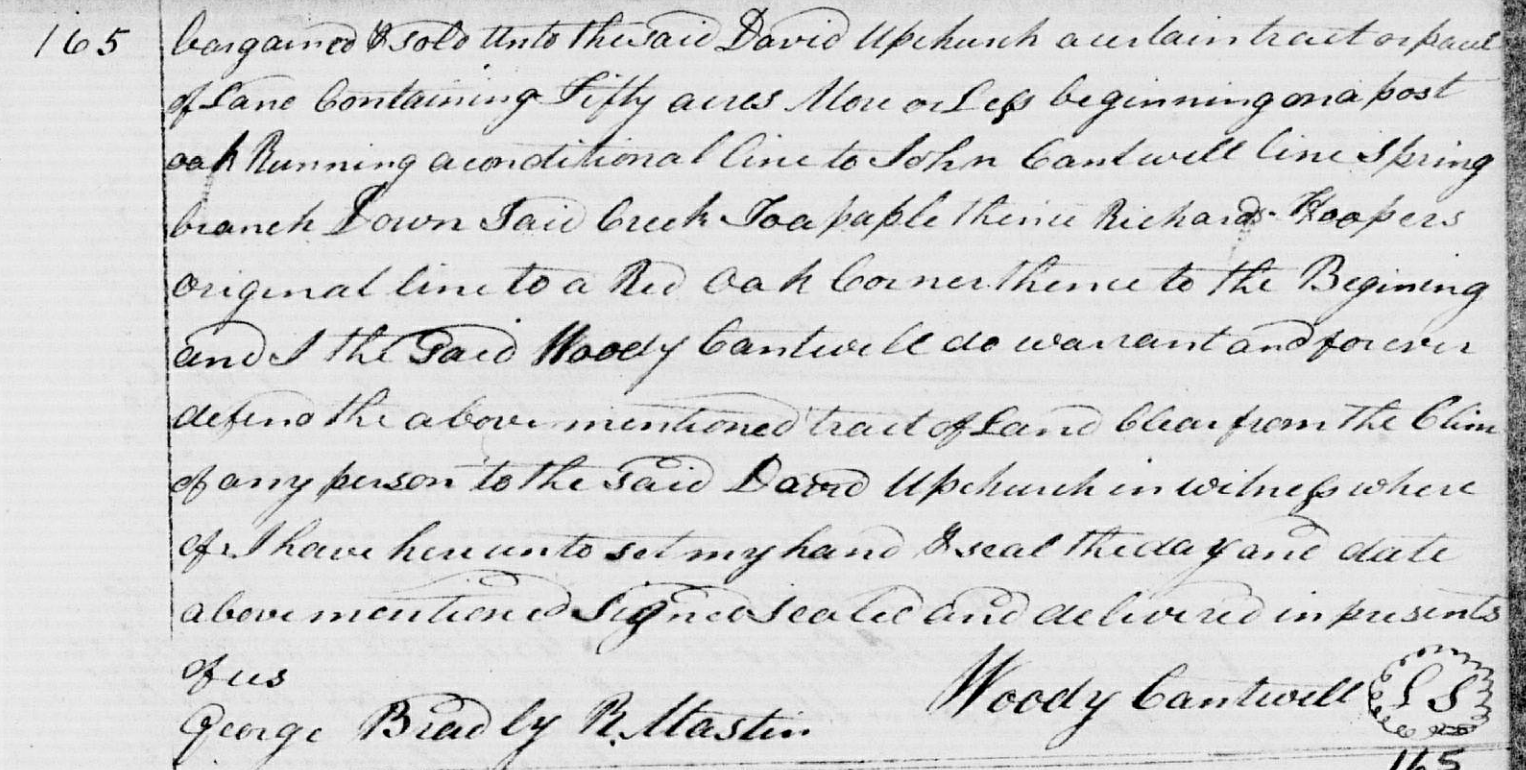 165 bargained & sold unto the said David Upchurch a certain tract or parcel
of Land Containing Fifty acres More or Less beginning on a post
oak Running a conditional line to John Cantwell line Spring
branch Down Said Creek To a paple thence Richards Hoopers
original line to a Red Oak Corner thence to the Begining
and I the Said Woody Cantwell do warrant and forever
defend the above mentioned tract of Land Clear from the Clim
of any person to the said David Upchurch in witness where
of I have hereunto set my hand & seal the day and date
above mentioned Signed Sealed and delivered in presents
of us
Woody Cantwell L S
George Bradly R. Mastin
165